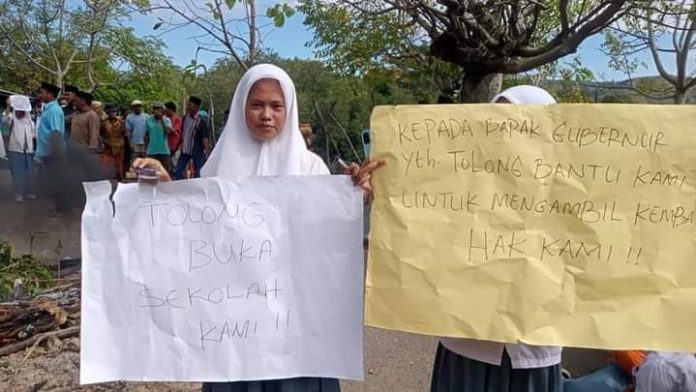 TOLONG
BUKA
SEKOLAH
KAMI !!
KEPADA BAPAK GUBERNUR
Yth. TOLONG BANTU KAMI
UNTUK MENGAMBIL KEMBA
HAK KAMI !!